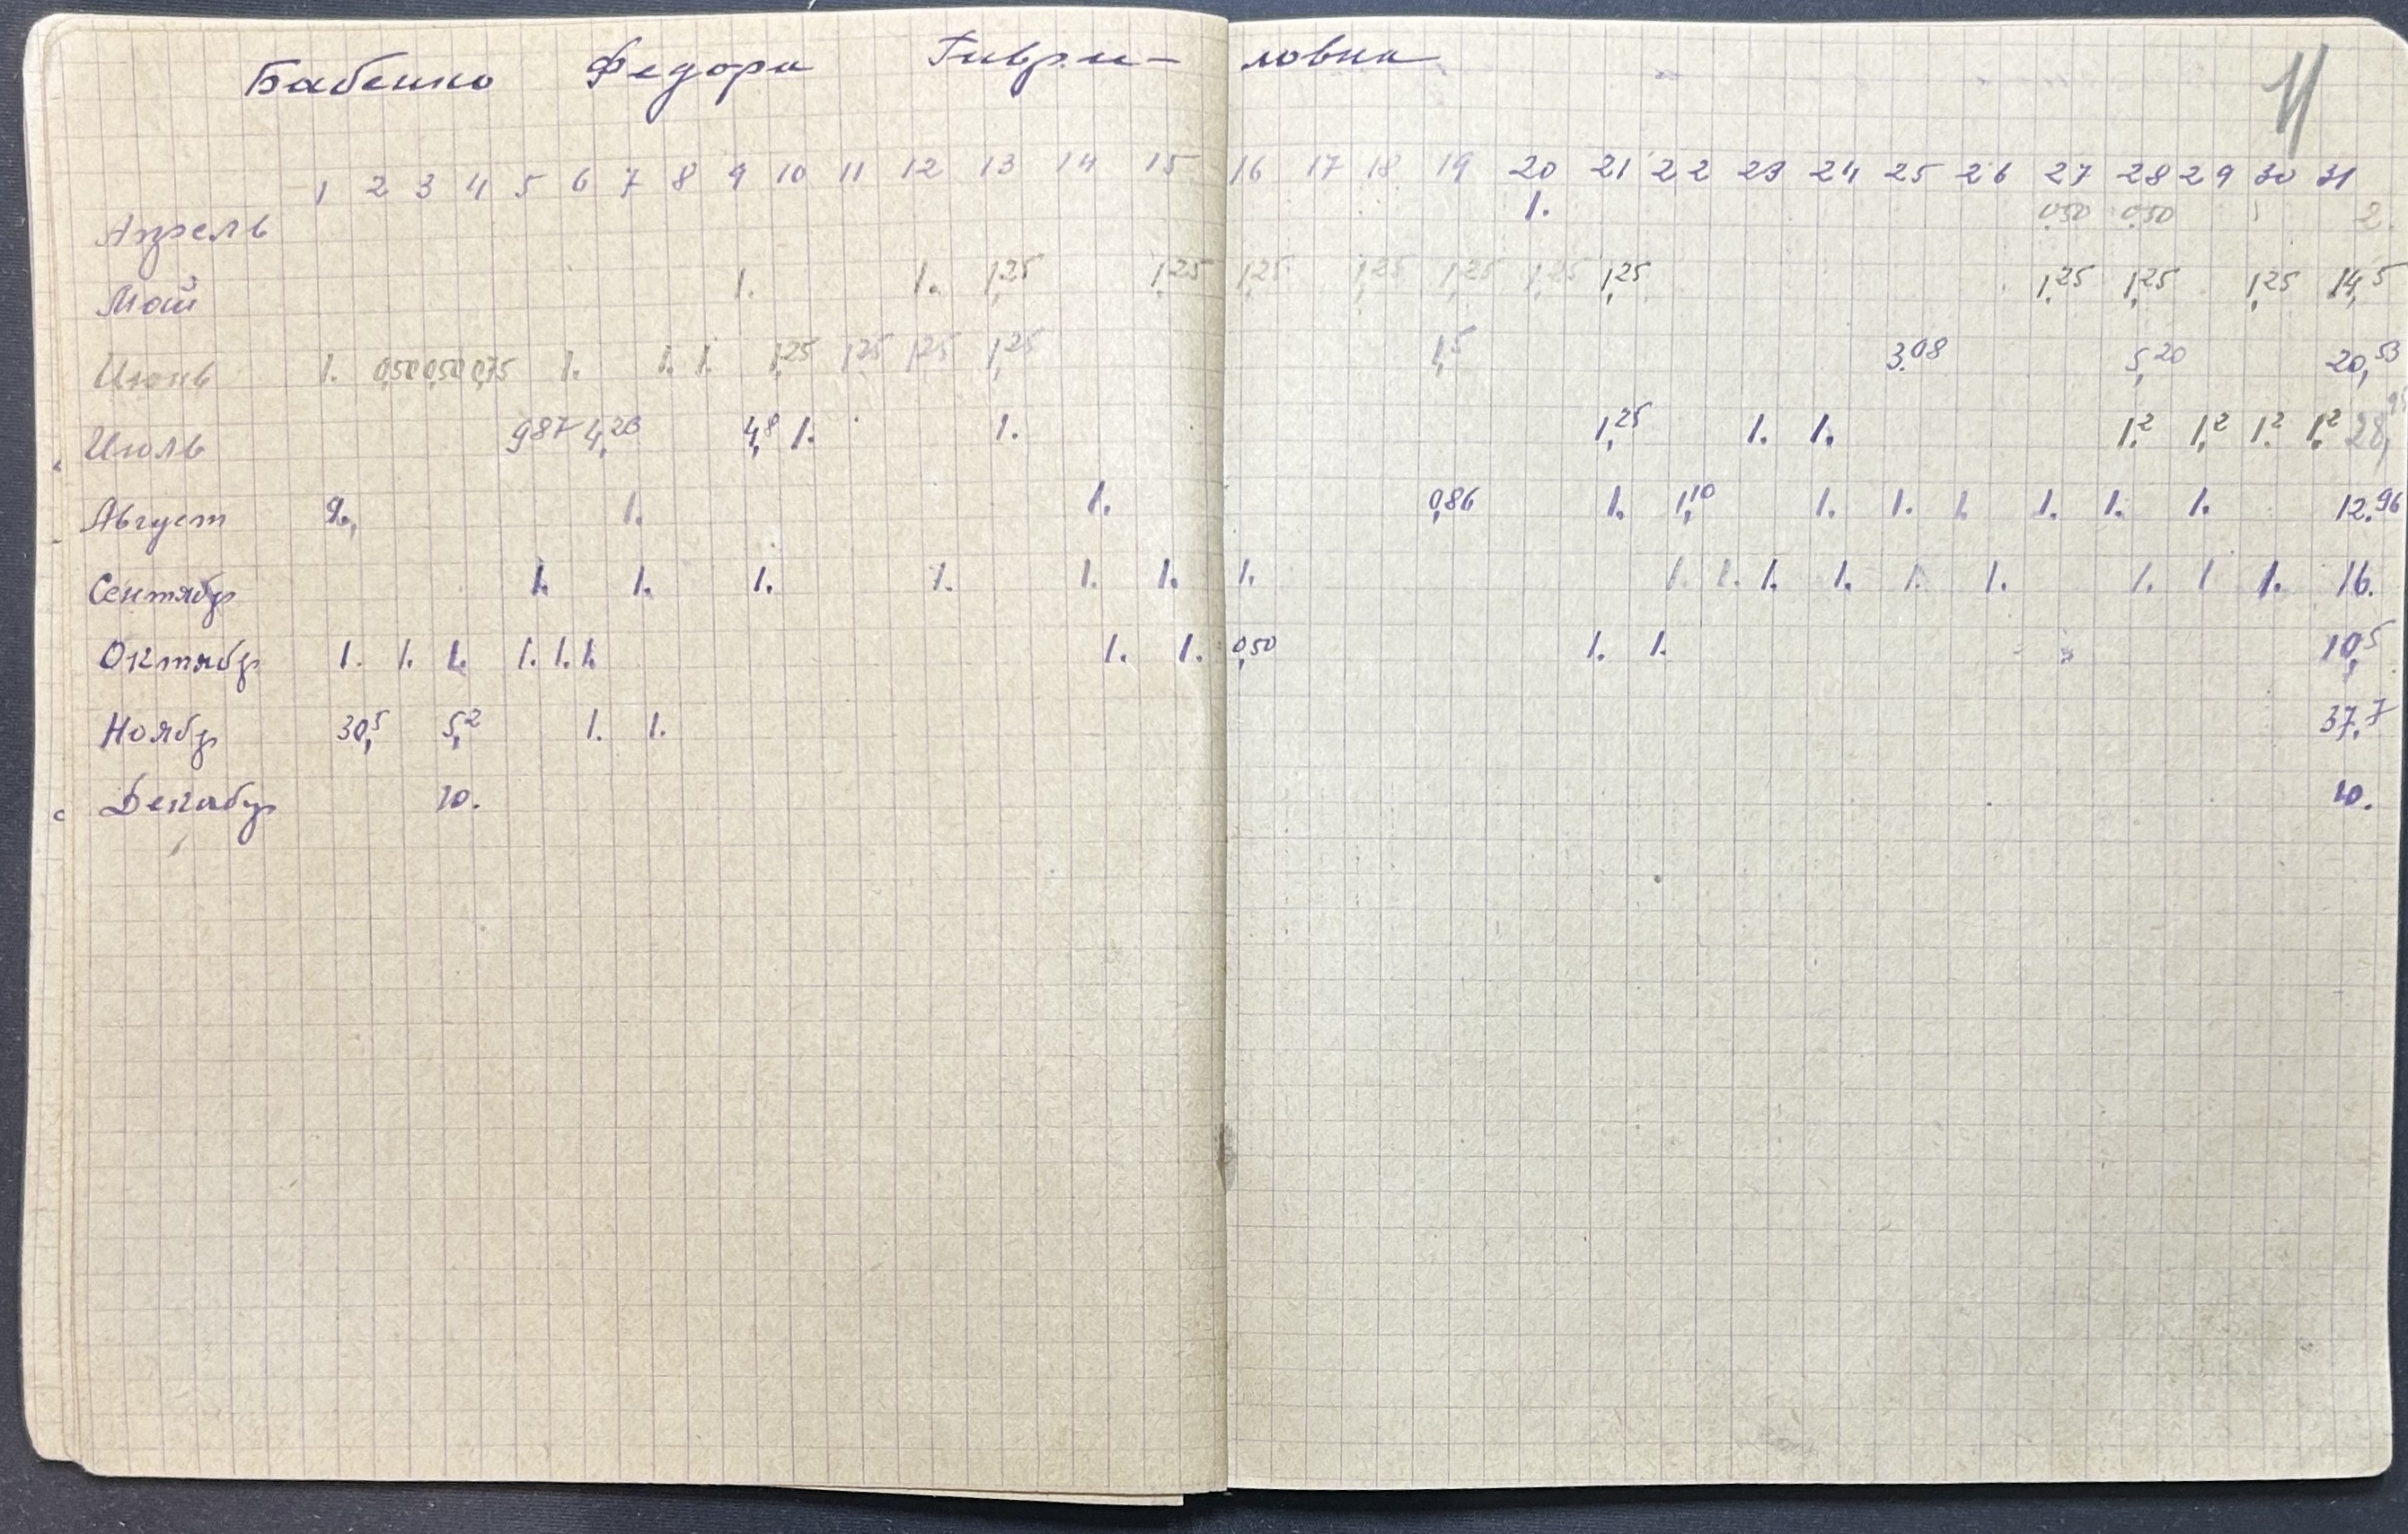 Бабенко Федора Гаври- ловна
11
1 2 3 4 5 6 7 8 9 10 11 12 13 14 15 16 17 18 19 20 21 22 23 24 25 26 27 28 29 30 31
Апрель 1. 0,50 0,50 2.
Май 1. 1. 1,25 1,25 1,25 1,25 1,25 1,25 1,25 1,25 1,25 1,25 14,5
Июнь 1. 0,50 0,50 0,75 1. 1. 1. 1,25 1,25 1,25 1,25 1,5 3.08 5,20 20,53
Июль 987 4,20 4,8 1. 1. 1,25 1. 1. 1.2 1,2 1.2 1.2 28,95
Август 2., 1. 1. 0,86 1. 1,10 1. 1. 1. 1. 1. 1. 12.96
Сентябр 1. 1. 1. 1. 1. 1. 1. 1. 1. 1. 1. 1. 1. 1. 1 1. 16.
Октябр 1. 1. 1. 1. 1. 1. 1. 1. 0,50 1. 1. 10,5
Ноябр 30,5 5,2 1. 1. 37.7
Декабр 10. 10.